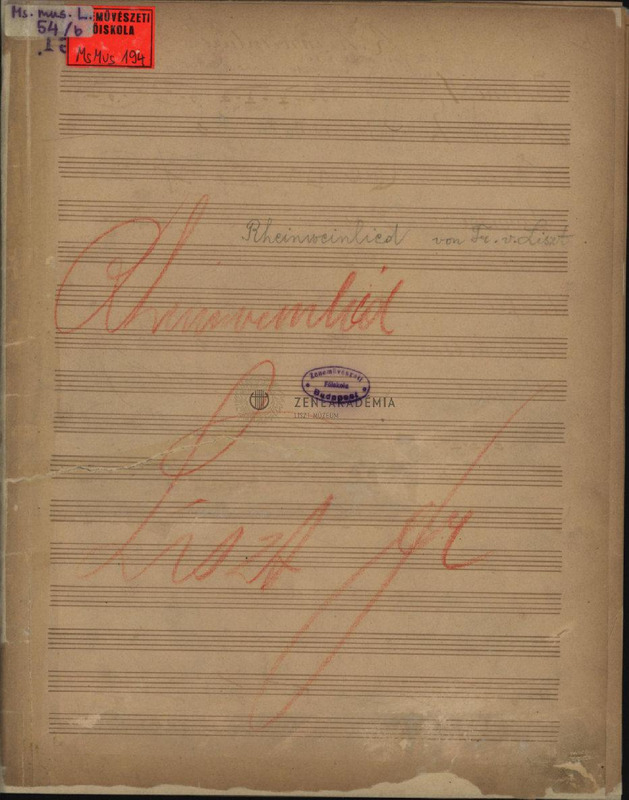 Ms. mus. L.
54/b
MŰVÉSZETI
ŐISKOLA
MsMus 194
Rheinweinlied von Fr. v. Liszt
Rheinweinlied
Zeneművészeti
Főiskola
Budapest
ZENEAKADÉMIA
LISZT MÚZEUM
Liszt